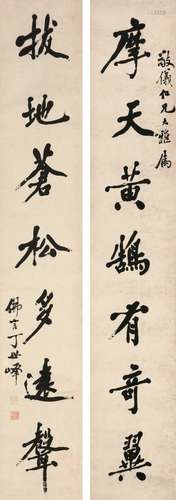 敬儀仁兄大雅屬
摩天黃鵠有奇翼
拔地蒼松多遠聲
佛言丁世嶧